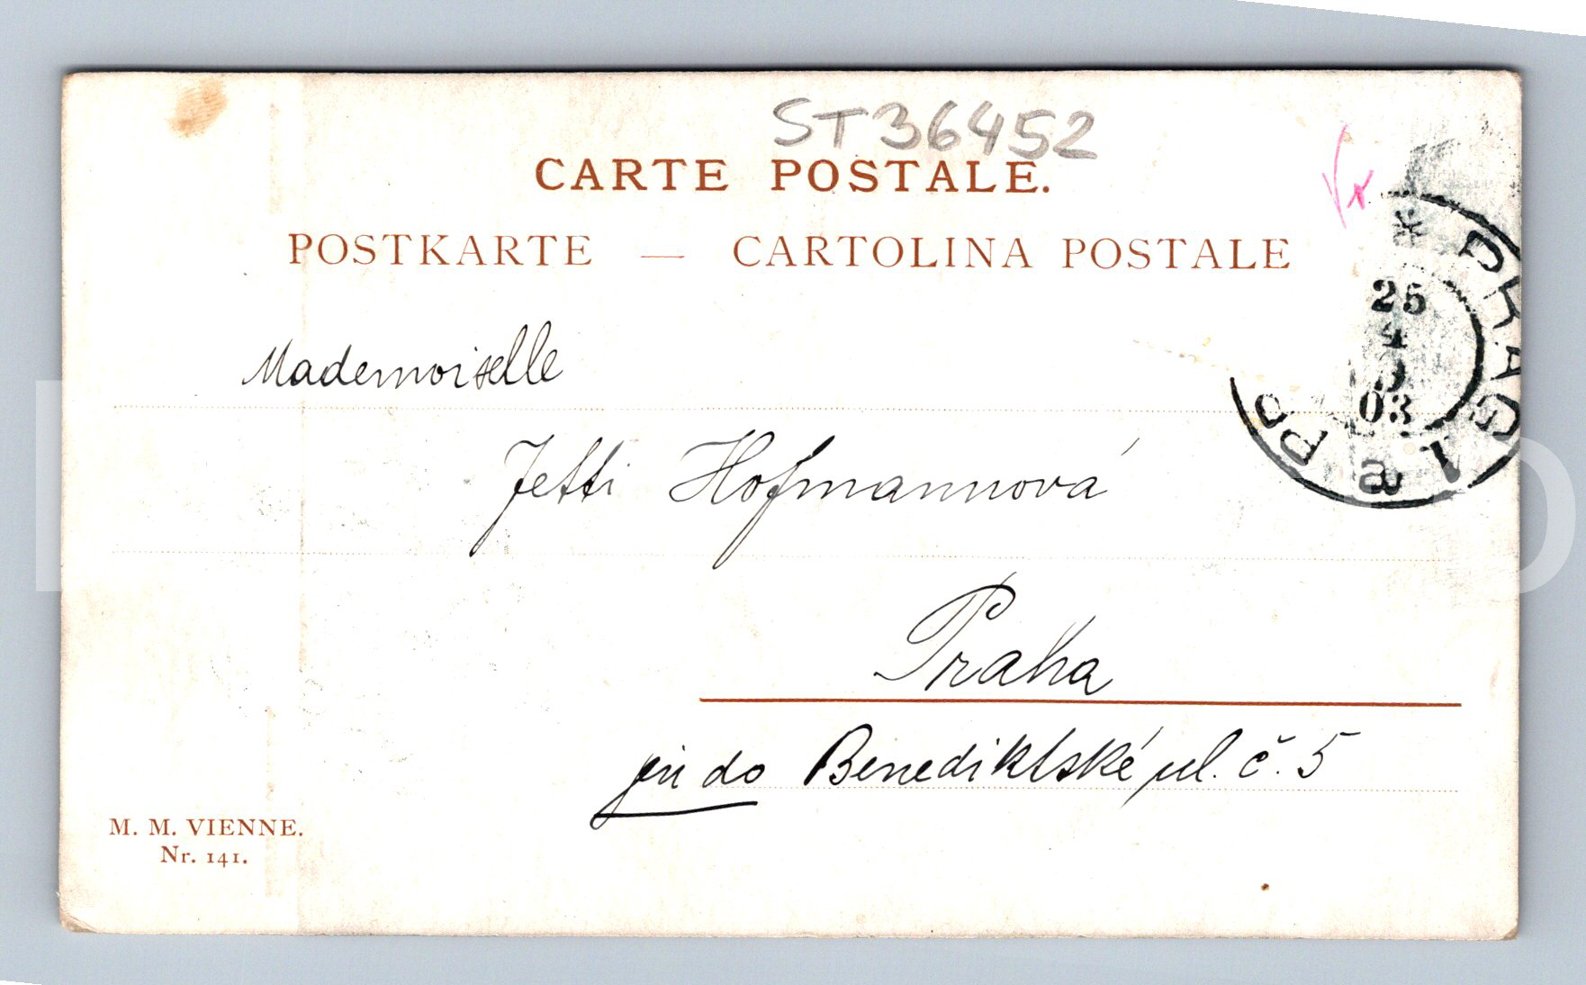 ST36452
CARTE POSTALE.
POSTKARTE — CARTOLINA POSTALE
* PRAG 1 a
25
4
9
03
Mademoiselle
Jetti Hofmannová
Praha
do Benediktské ul. č. 5
M. M. VIENNE.
Nr. 141.